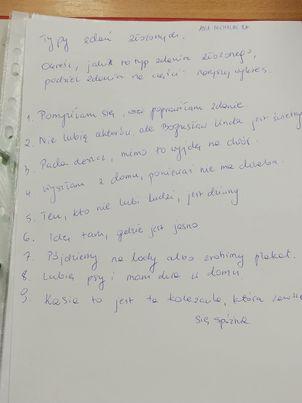 Typy zdań złożonych.
Określ, jakie to typ zdania złożonego,
podziel zdania na części i narysuj wykres.
1. Pomyliłam się, więc poprawiam zdanie
2. Nie lubię aktorów, ale Bogusław Linda jest świetny
3. Pada deszcz, mimo to wyjdę na dwór.
4. Wyszłam z domu, ponieważ nie ma
5. Ten, kto nie lubi ludzi, jest dziwny
6. Idę tam, gdzie jest jasno
7. Pójdziemy na lody albo zrobimy plakat.
8. Lubię psy i mam dwa w domu
9. Kasia to jest ta koleżanka, która
się spóźnia